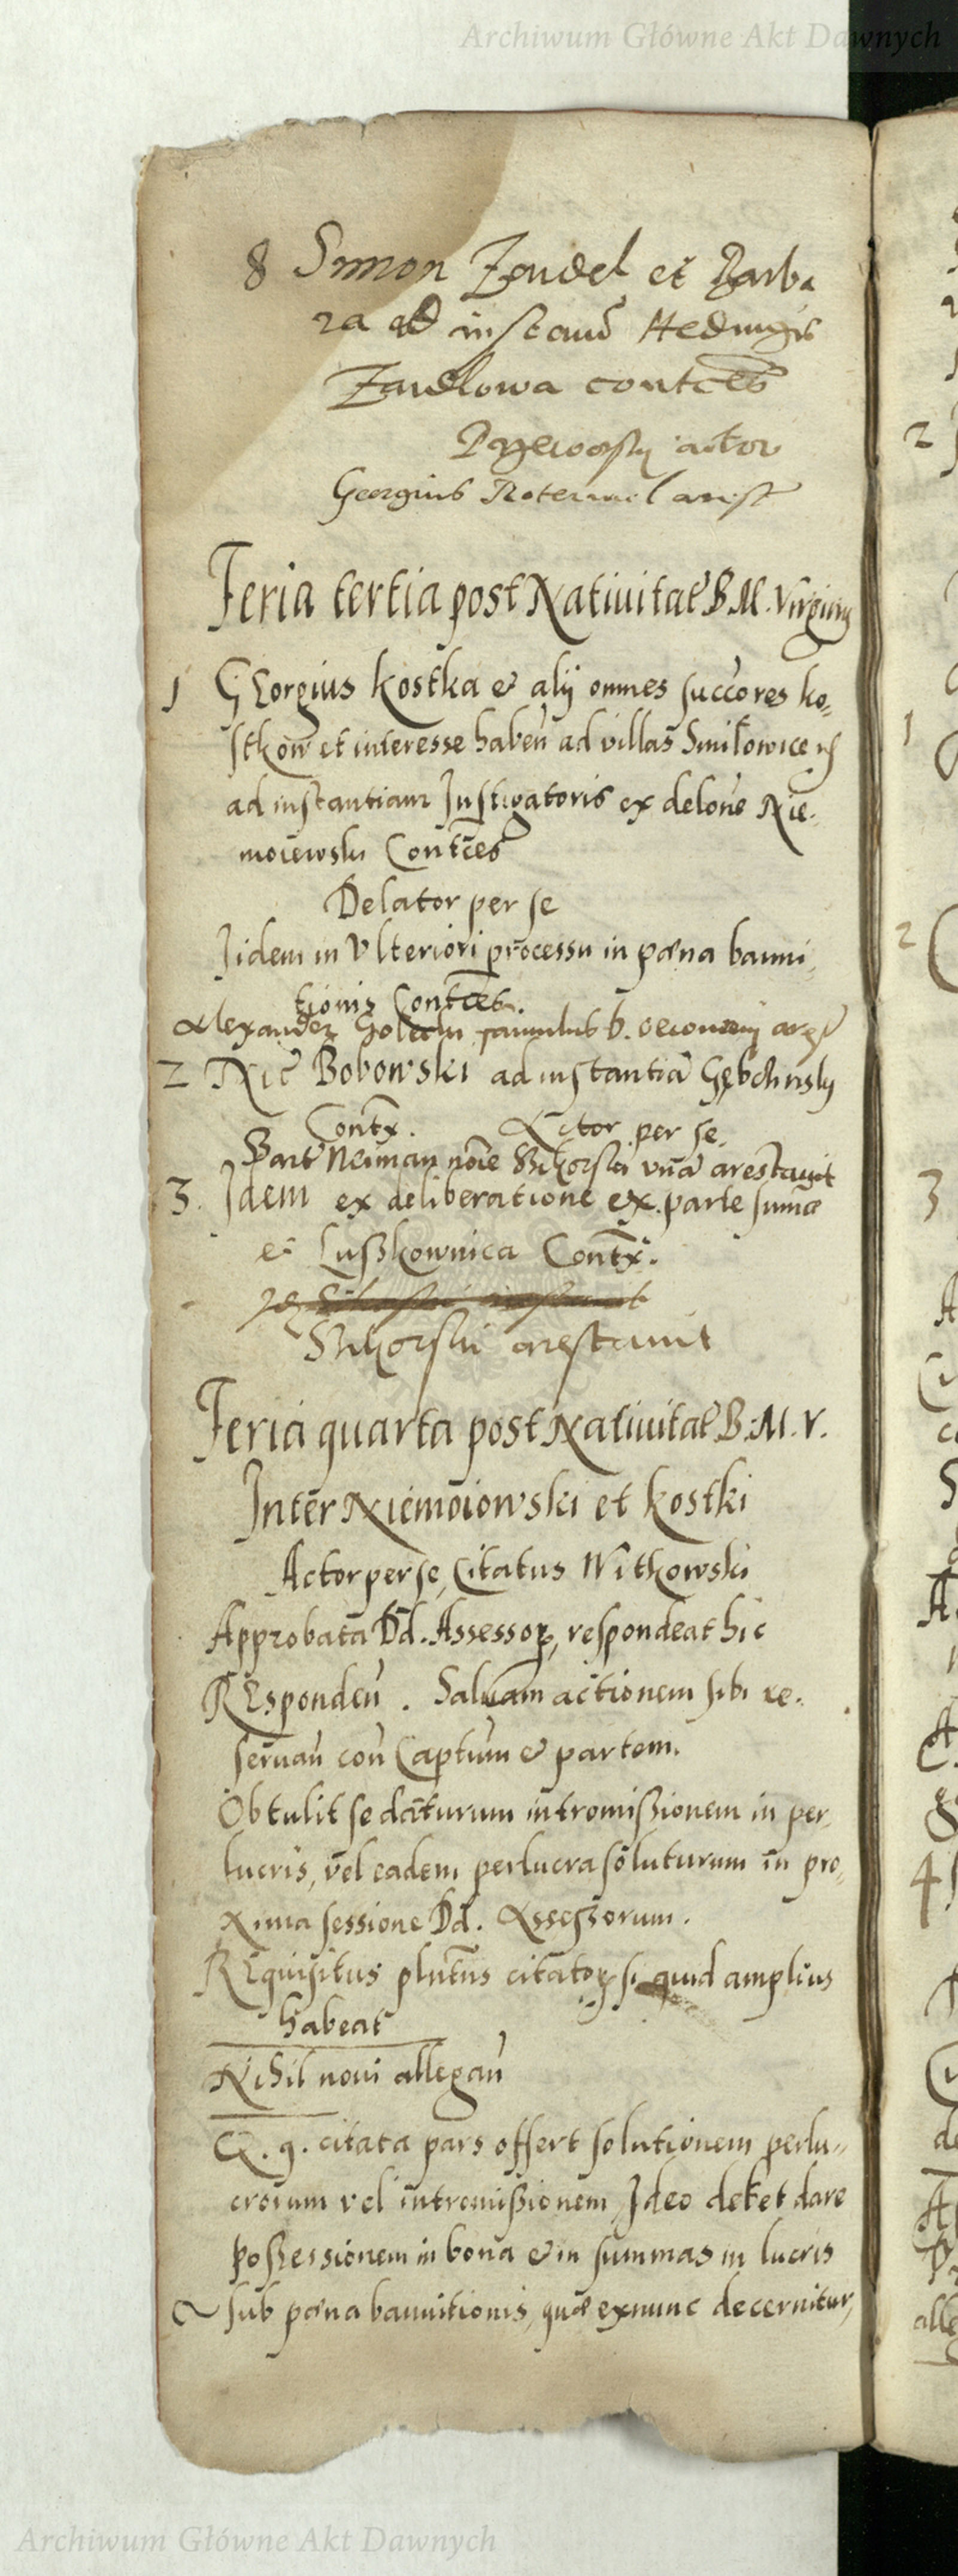 Archiwum Główne Akt Dawnych
8 Simon Zandel et Barba
ra ad instanti Hedwigis
Zandlowa contces
actor
Georgius Rotermel arest
Feria tertia post Natiuitat B M. Virginis
1 GEorgius Kostka & alij omnes succores Ko,
stkow et interesse haben ad villas Smilowice
ad instantiam Instigatoris ex delone Nie,
moiewski Contces
Delator per se
Iidem in Vlteriori processu in pœna banni,
tionis Contces.
Alexander famulus
2 Nic Bobowski ad instantia
Contx. Actor per se.
Bart Neiman noie Sikorski vna arestauit
3. Idem ex deliberatione ex parte summa
et Lußkownica Contx.
Sikorski arestauit
Feria quarta post Natiuitat B. M. V.
Inter Niemoiowski et Kostki
Actor per se, Citatus Witkowski
Approbata Dd. Assessor, respondeat hic
REsponden . Saluam actionem sibi re,
seruan con Captum & partem.
Obtulit se daturum intromißionem in per,
lucris, vel eadem perlucra soluturum in pro,
xima sessione Dd. Assessorum.
REquisitus plntus citator, si quid amplius
habeat
Nihil noui allegan
Q. q. citata pars offert solutionem perlu,,
crorum vel intromißionem, Ideo debet dare
poßessionem in bona & in summas in lucris
sub pœna bannitionis, quæ exnunc decernitur,
2
1
2
3
4
Archiwum Główne Akt Dawnych